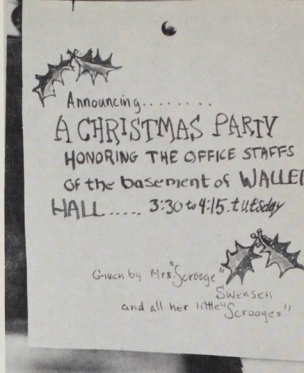 Announcing........
A CHRISTMAS PARTY
HONORING THE OFFICE STAFFS
of the basement of WALLER
HALL..... 3:30 to 4:15. tutsday
Given by Mrs. "Scrooge"
Swensen
and all her little "Scrooges"